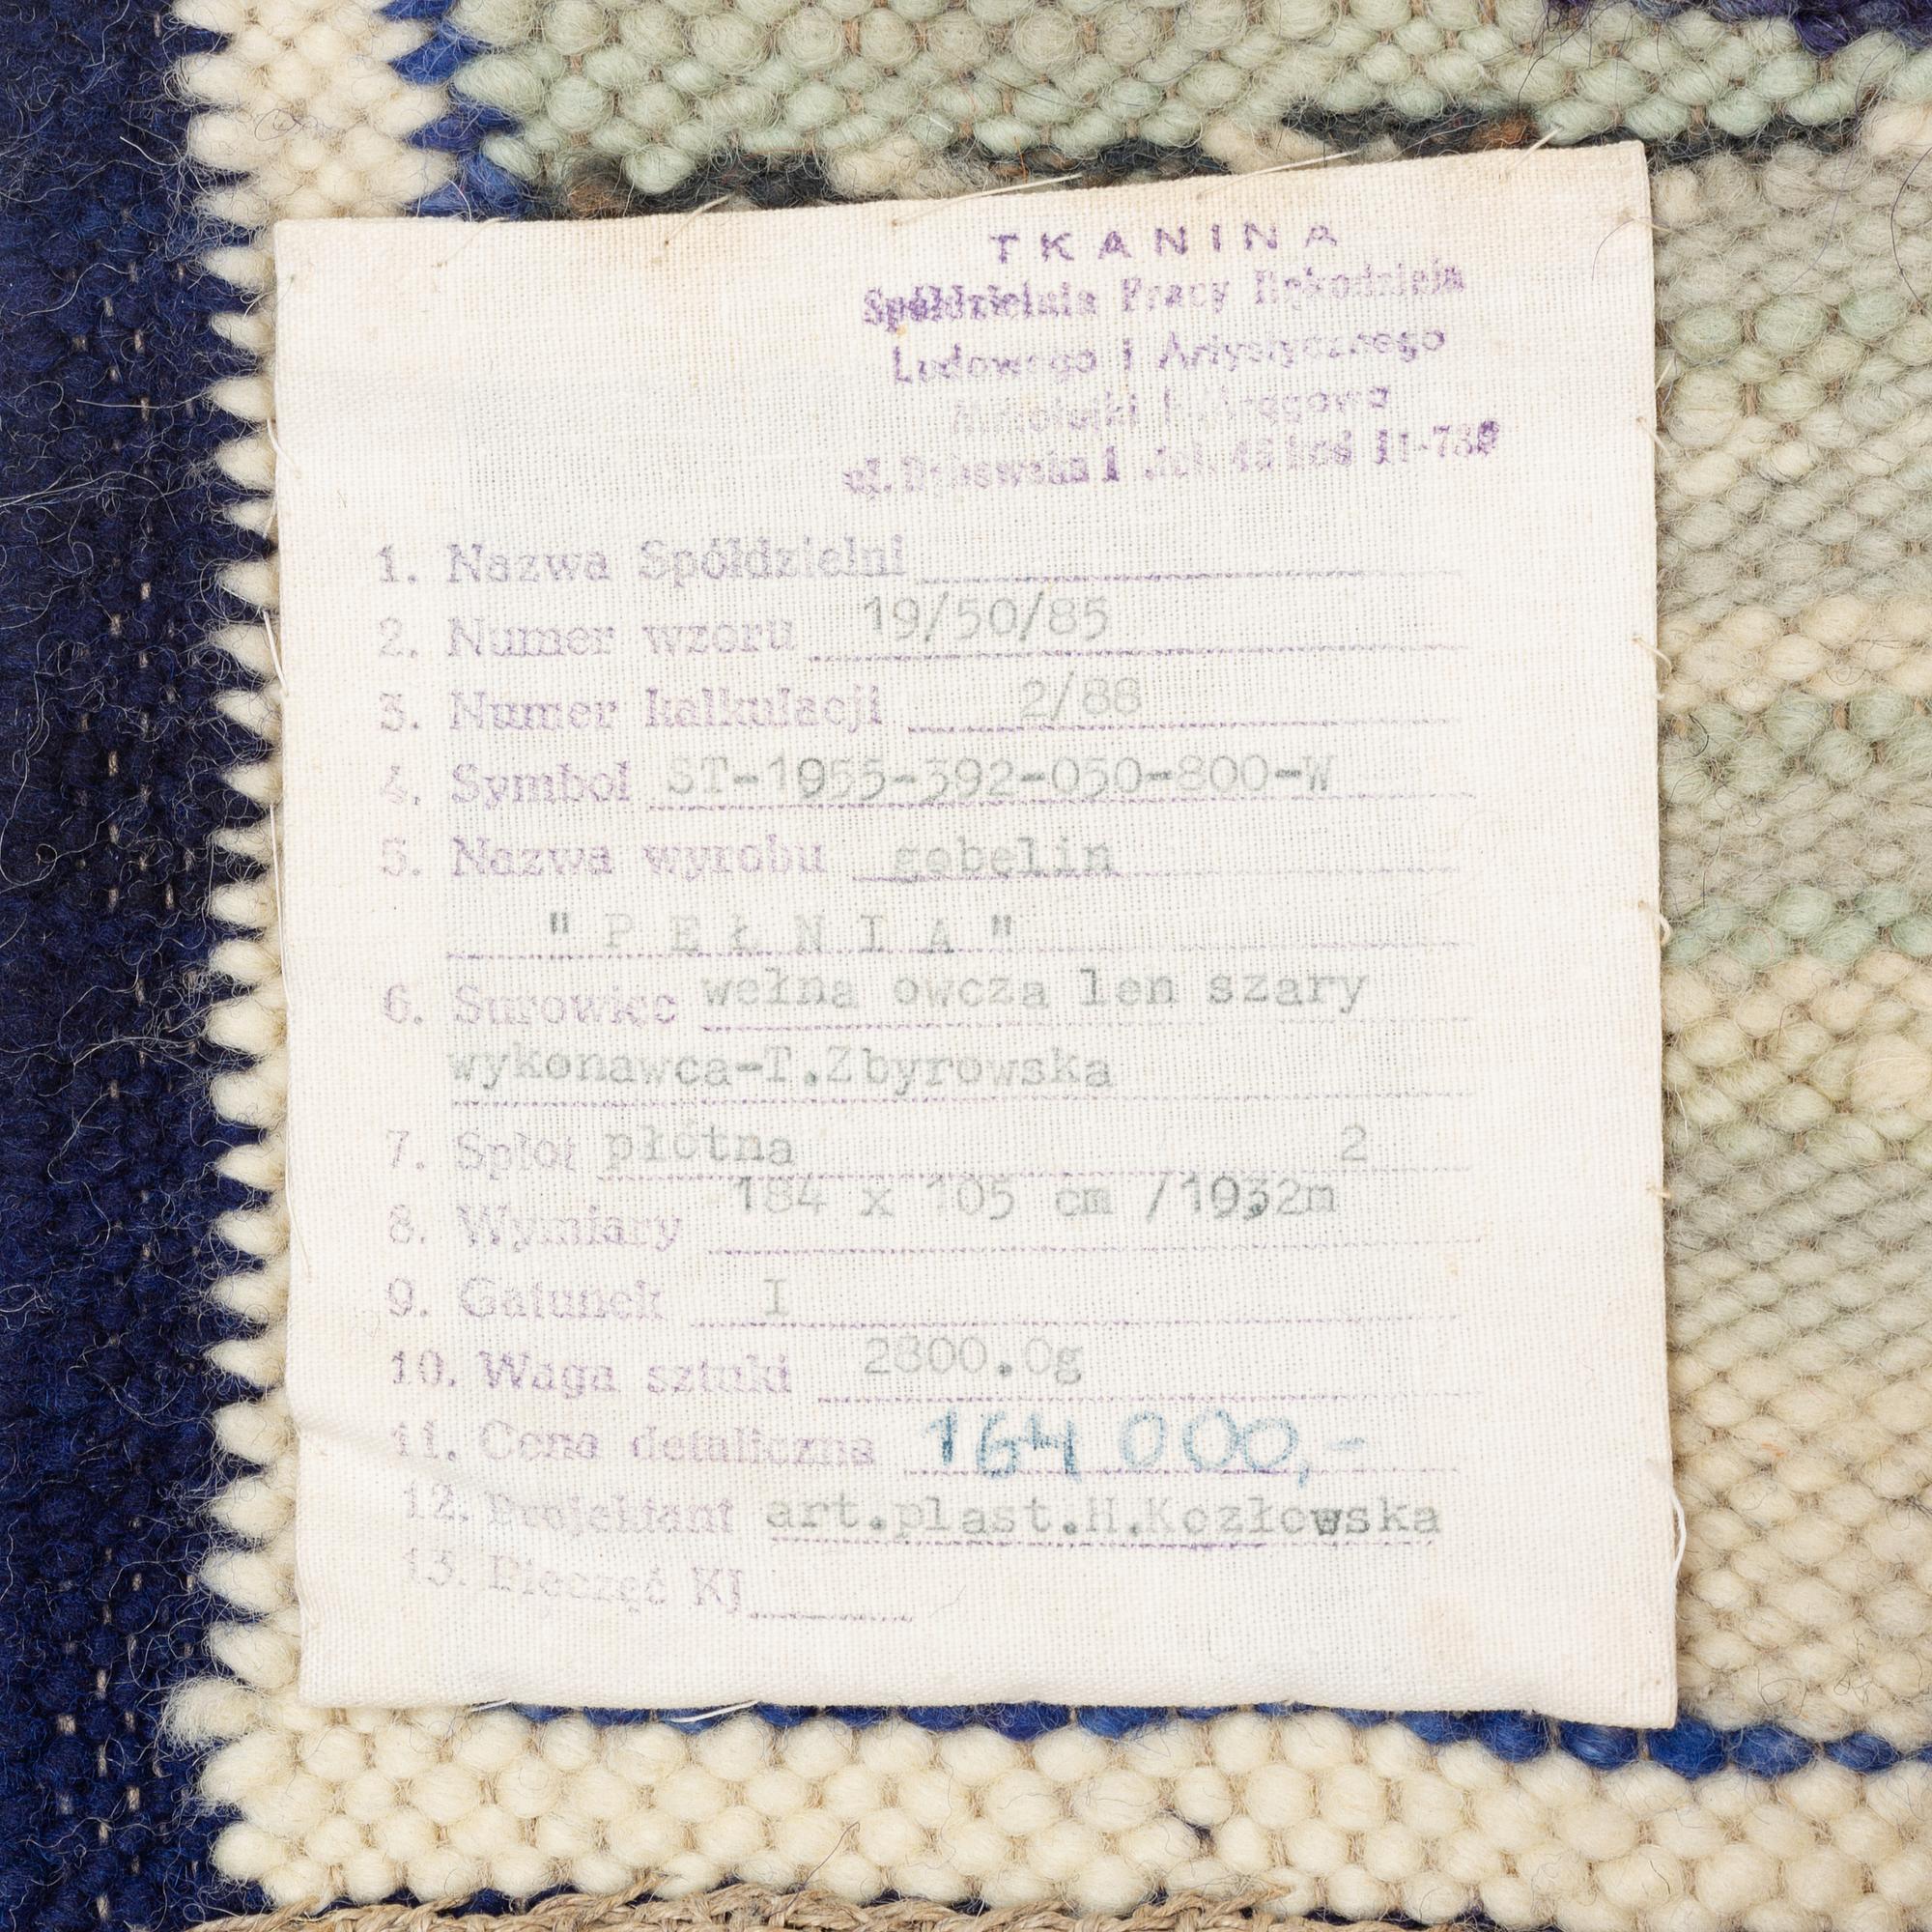 TKANINA
Spółdzielnia Pracy Rękodzieła
Ludowego i Artystycznego
ul. tel. 11-73
1. Nazwa Spółdzielni
2. Numer wzoru 19/50/85
3. Numer kalkulacji 2/88
4. Symbol ST-1955-392-050-800-W
5. Nazwa wyrobu gobelin
"PEŁNIA"
6. Surowiec wełna owcza len szary
wykonawca-T.Zbyrowska
7. Splot płótna 2
8. Wymiary 184 x 105 cm /1932m
9. Gatunek I
10. Waga sztuki 2800.0g
11. Cena detaliczna 164 000,-
12. Projektant art.plast.H.Kozłowska
13. Pieczęć KJ